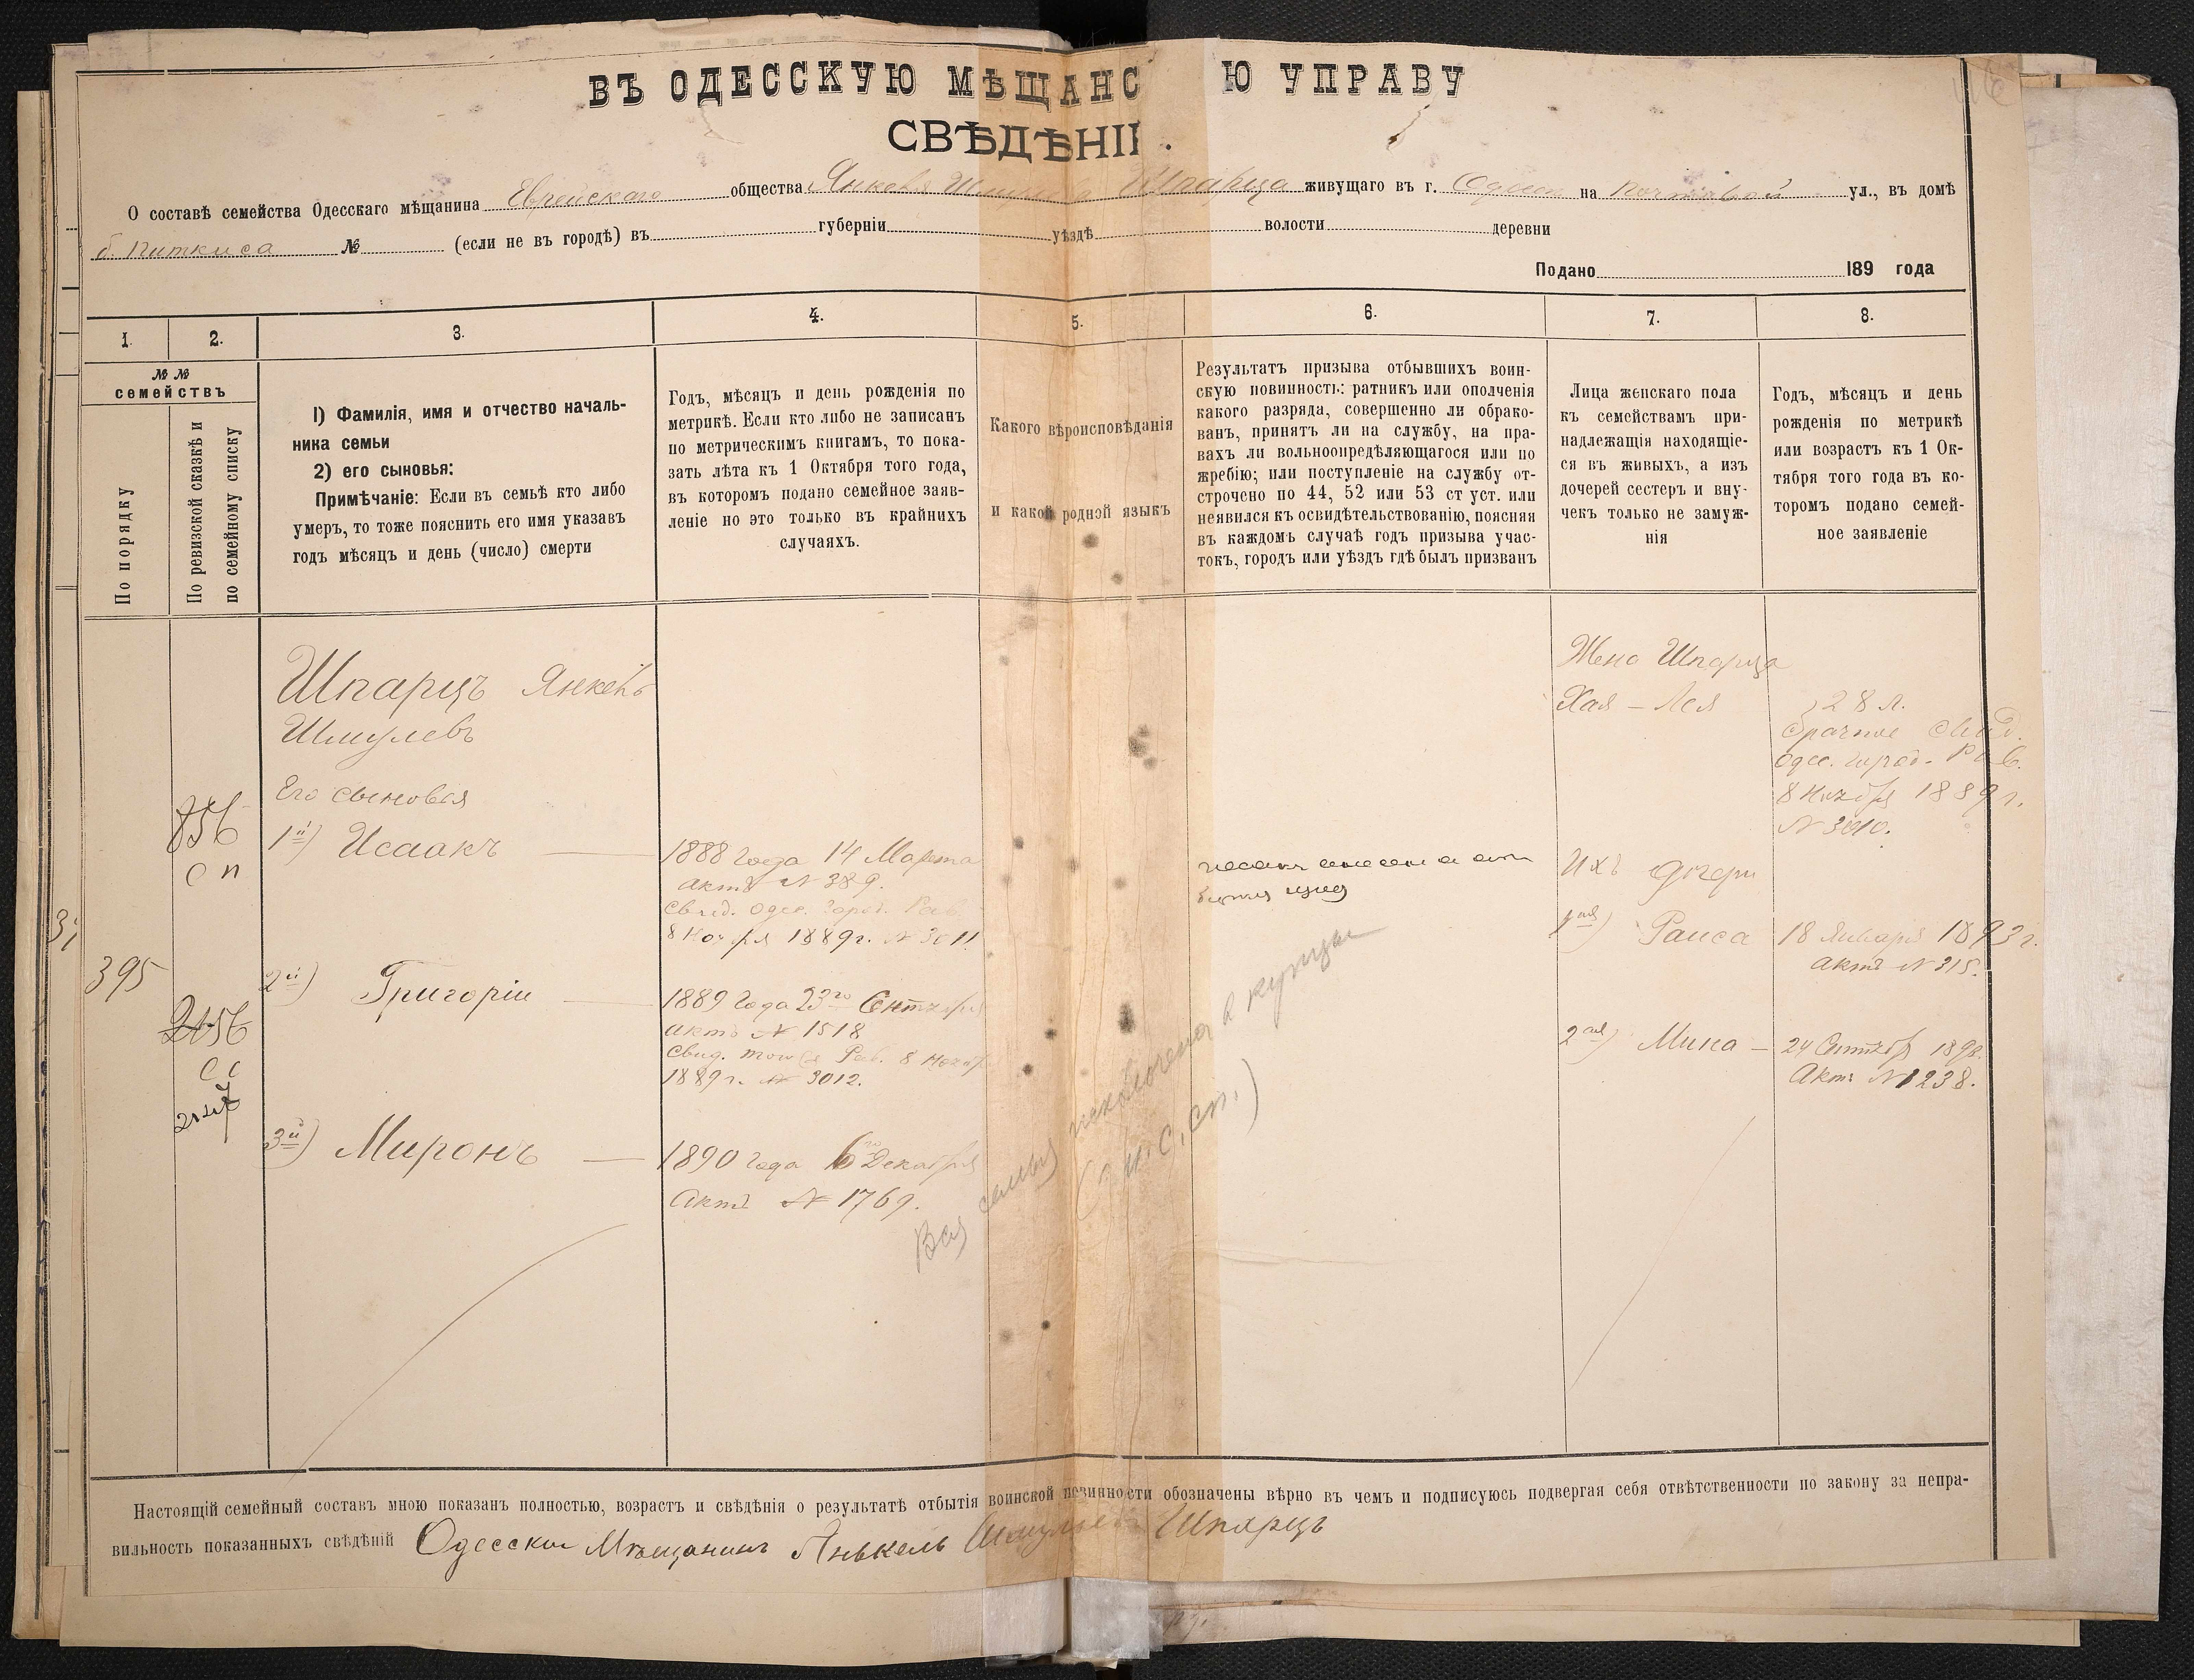 ВЪ ОДЕССКУЮ МѢЩАНС Ю УПРАВУ
СВѢДѢНІ .
О составѣ семейства Одесскаго мѣщанина Еврейскаго общества Янкеля Шмулева Шпарца живущаго въ г. Одессѣ на Почтовой ул., въ домѣ
б. Питкиса № (если не въ городѣ) въ губерніи уѣздѣ волости деревни
Подано 189 года
1. 2. 3. 4. 5. 6. 7. 8.
№ №
семействъ
По порядку
По ревизской сказкѣ и
по семейному списку
1) Фамилія, имя и отчество началь-
ника семьи
2) его сыновья:
Примѣчаніе: Если въ семьѣ кто либо
умеръ, то тоже пояснить его имя указавъ
годъ мѣсяцъ и день (число) смерти
Годъ, мѣсяцъ и день рожденія по
метрикѣ. Если кто либо не записанъ
по метрическимъ книгамъ, то пока-
зать лѣта къ 1 Октября того года,
въ которомъ подано семейное заяв-
леніе но это только въ крайнихъ
случаяхъ.
Какого вѣроисповѣданія
и какой родной языкъ
Результатъ призыва отбывшихъ воин-
скую повинность: ратникъ или ополченія
какого разряда, совершенно ли обрако-
ванъ, принятъ ли на службу, на пра-
вахъ ли вольноопредѣляющагося или по
жребію; или поступленіе на службу от-
строчено по 44, 52 или 53 ст уст. или
неявился къ освидѣтельствованію, поясняя
въ каждомъ случаѣ годъ призыва учас-
токъ, городъ или уѣздъ гдѣ былъ призванъ
Лица женскаго пола
къ семействамъ при-
надлежащія находящіе-
ся въ живыхъ, а изъ
дочерей сестеръ и вну-
чекъ только не замуж-
нія
Годъ, мѣсяцъ и день
рожденія по метрикѣ
или возрастъ къ 1 Ок-
тября того года въ ко-
торомъ подано семей-
ное заявленіе
395
856
с п
2156
с с
Шпарцъ Янкель
Шмулевъ
Его сыновья
1й) Исаакъ
2й) Григорій
3й) Миронъ
1888 года 14 Марта
актъ № 389.
Свид. Одес. Город. Рав.
8 Ноября 1889 г. № 3011
1889 года 23го Сентября
актъ № 1518
Свид. того же Рав. 8 Ноября
1889 г. № 3012.
1890 года 6го Декабря
Актъ № 1769.
Вся семья исключена в купцы
Жена Шпарца
Хая – Лея
Ихъ дочери
1ая) Раиса
2ая) Мина
28 л.
брачное Свид.
Одес. Город. Рав.
8 Ноября 1889 г.
№ 3010.
18 Января 1893 г.
актъ № 315.
24 Сентябр 1898.
Актъ № 1238.
Настоящій семейный составъ мною показанъ полностью, возрастъ и свѣдѣнія о результатѣ отбытія воинской повинности обозначены вѣрно въ чемъ и подписуюсь подвергая себя отвѣтственности по закону за непра-
вильность показанныхъ свѣдѣній Одесскій Мѣщанинъ Янькель Шмулевъ Шпарцъ